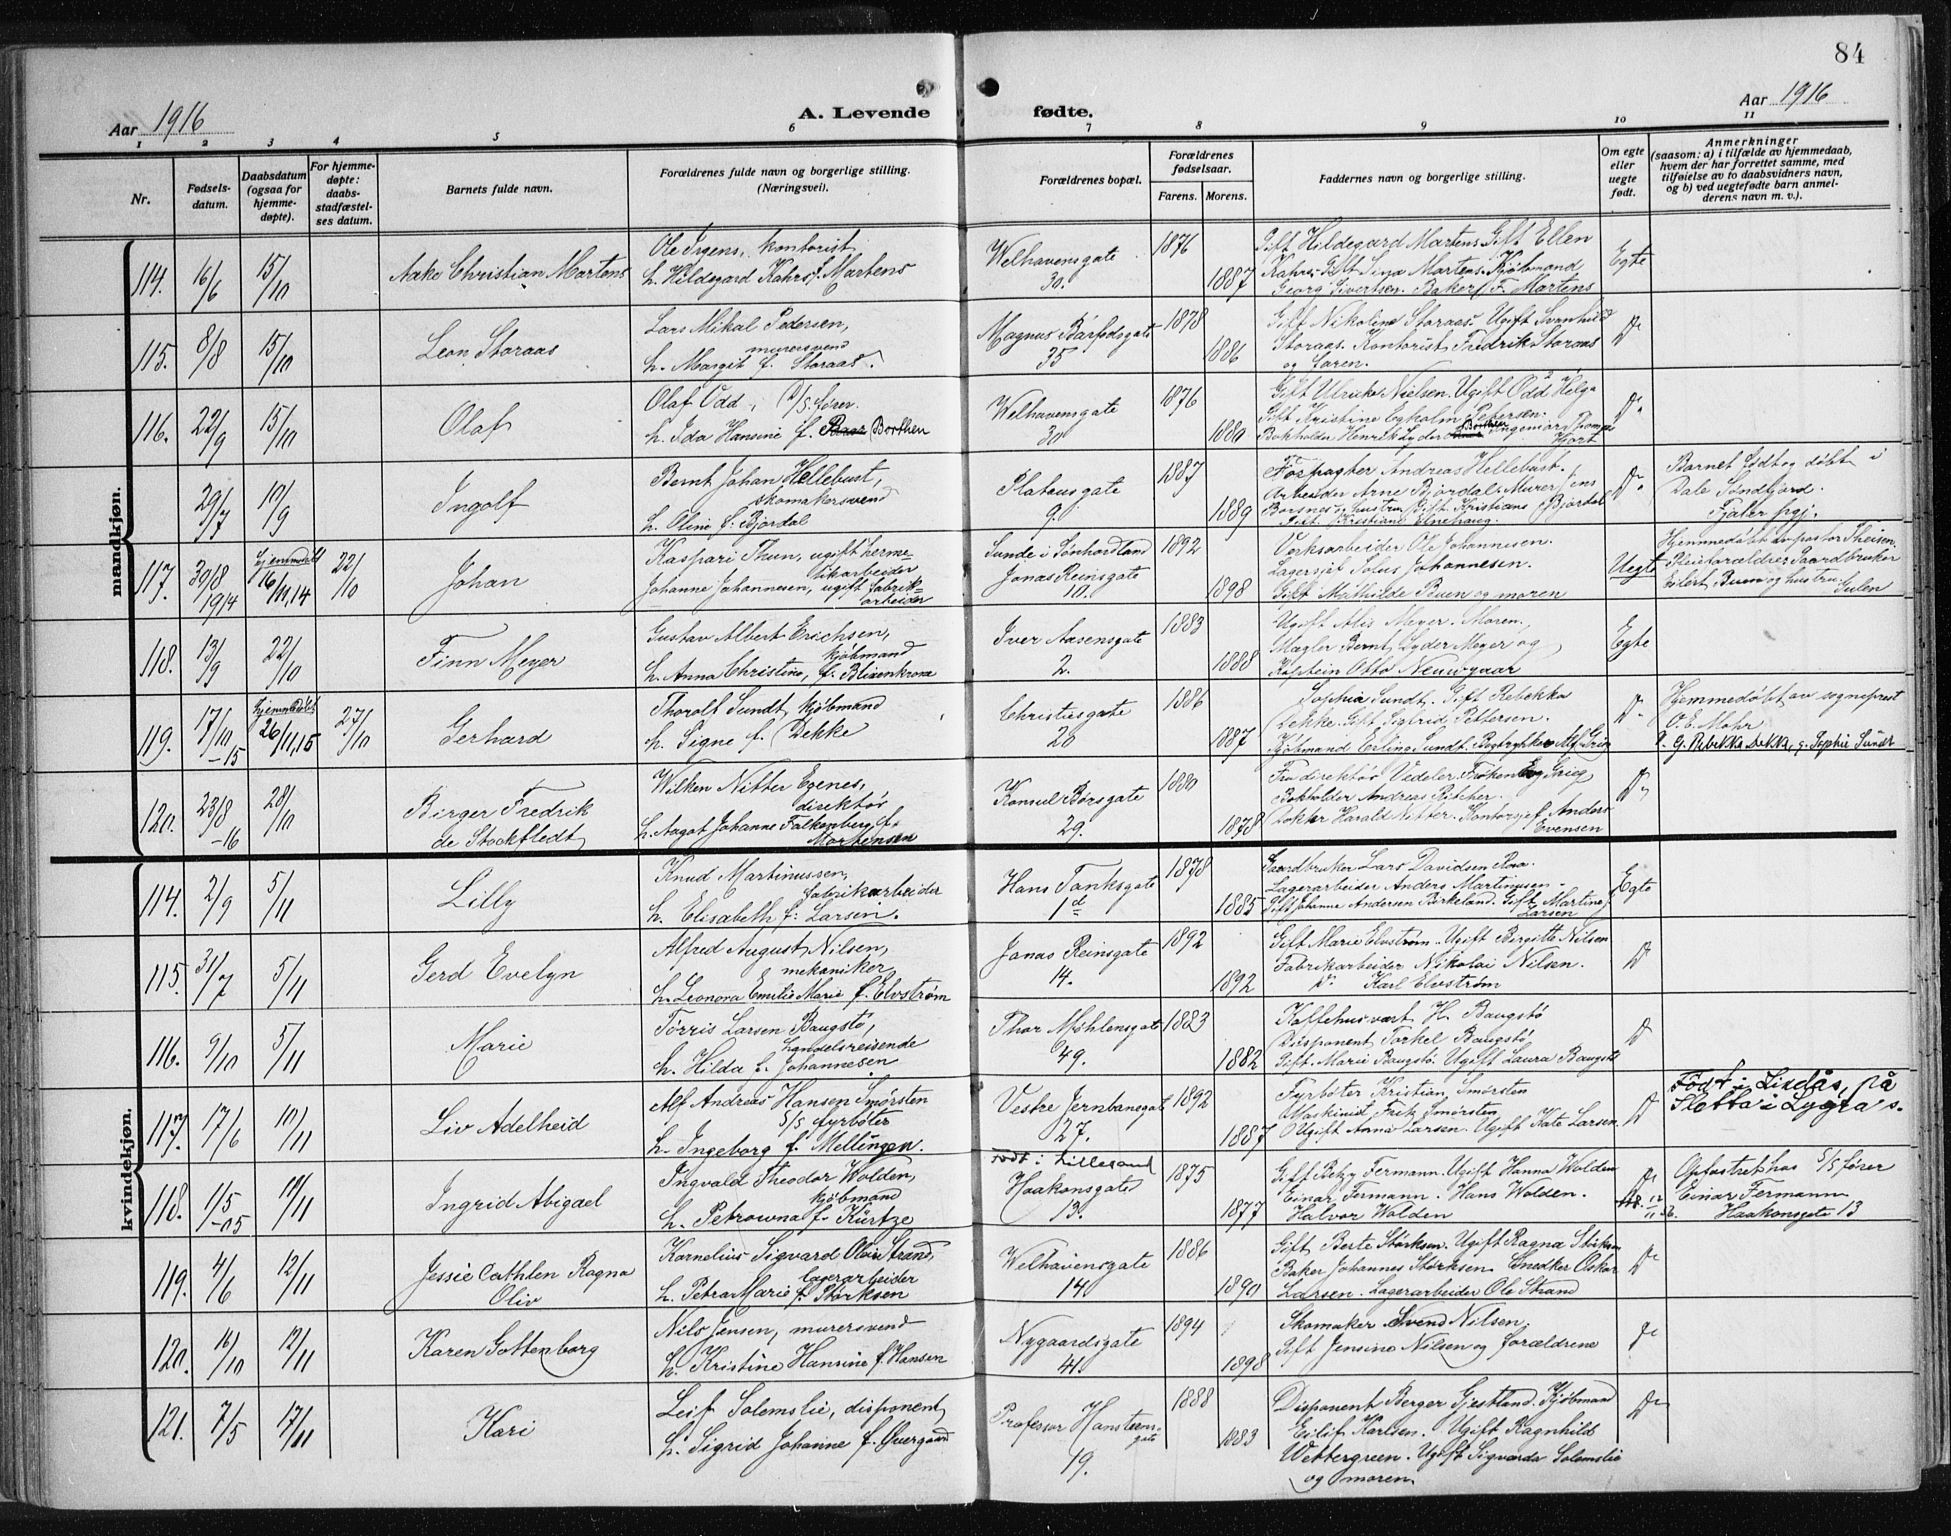 84
Aar 1916
A. Levende fødte.
Aar 1916
1 2 3 4 5 6 7 8 9 10 11
Nr.
Fødsels-
datum.
Daabsdatum
(ogsaa for
hjemme-
døpte).
For hjemme-
døpte:
daabs-
stadfæstel-
ses datum.
Barnets fulde navn.
Forældrenes fulde navn og borgerlige stilling.
(Næringsvei).
Forældrenes bopæl.
Forældrenes
fødselsaar.
Farens. Morens.
Faddernes navn og borgerlig stilling.
Om egte
eller
uegte
født.
Anmerkninger
(saasom: a) i tilfælde av hjemmedaab,
hvem der har forrettet samme, med
tilføielse av to daabsvidners navn,
og b) ved uegtefødte barn anmel-
derens navn m. v.).
mandkjøn.
114. 16/6 15/10 Aake Christian Martens
Ole Irgens, kontorist
h. Hildegard Kahrs f. Martens
Welhavensgate
30.
1876
1887
Gift Hildegard Martens. Gift Ellen
Kahrs. Gift Sina Martens. Kjøbmand
Georg Sivertsen. Baker F. Martens
Egte
115. 8/8 15/10 Leon Storaas
Lars Mikal Pedersen,
murersvend
h. Margit f. Storaas.
Magnus Barfodsgate
35
1878
1886
Gift Nikoline Storaas. Ugift Svanhild
Storaas. Kontorist Fredrik Storaas
og faren.
Do
116. 22/9 15/10 Olaf
Olaf Odd, D/S. fører.
h. Ida Hansine f. Borthen
Welhavensgate
30
1876
1880
Gift Ulrikke Nielsen. Ugift Odd Helga
Gift Kristine Eykolm Petersen.
Bokholder Henrik Lyder Borthen Ingeniør
Hjort
Do
29/7 17/9 Ingolf
Bernt Johan Hellebust,
skomakersvend
h. Oline f. Bjørdal
Platousgate
9.
1887
1889
Forpagter Andreas Hellebust.
Arbeider Arne Bjørdal. Murer Jens
Borsnes, hustru Gift Kristians Bjørdal
Gift Kristiane
Do
Barnet født og døbt i
Dale Søndfjord.
Fjaler pgj.
117. 30/8 1914 Hjemmedøbt 16/11,14 22/10 Johan
Kaspari Thun, ugift herme-
tikarbeider
Johanne Johannesen, ugift fabrik-
arbeider
Sunde i Sønhordland
Jonas Reinsgate
10.
1892
1898
Verksarbeider Ole Johannesen.
Lagersjef Solus Johannesen.
Gift Mathilde Buen og moren
Uegte
Hjemmedøbt av pastor Theisen,
Pleieforældre: Gaardbruker
Eilert Buen og hustru
Gulen
118. 13/9 22/10 Finn Meyer
Gustav Albert Erichsen,
kjøbmand
h. Anna Christine, f. Blixenkrone
Iver Aasensgate
2.
1883
1888
Ugift Alis Meyer. Moren.
Mægler Bernt Lyder Meyer og
Kaptein Otto
Egte
119. 17/10 -15 Hjemmedøbt 26/11,15 27/10 Gerhard
Thorolf Sundt kjøbmand
h. Signe f. Dekke
Christiesgate
20
1886
1887
Sophie Sundt. Gift Rebekka
Dekke. Gift Sigrid Pettersen.
Kjøbmand Erling Sundt. Bogtrykker Alf Grieg
Do
Hjemmedøbt av sogneprest
O. E. Mohr
F. G. Rebekka Dekke, g. Sophie Sundt
120. 23/8 -16 28/10 Birger Fredrik
de Stockfledt
Wilken Nitter Egenes,
direktør
h. Aagot Johanne Falkenberg f.
Mortensen
Konsul Børsgate
29.
1880
1878
Fru direktør Vedeler. Frøken Grieg
Bokholder Andreas Ritcher.
Dokter Harald Nitter. Kontorsjef Anders
Evensen
Do
kvindekjøn.
114. 2/9 5/11 Lilly
Knud Martinussen,
fabrikarbeider
h. Elisabeth f. Larsen.
Hans Tanksgate
1d
1878
1885
Gaardbruker Lars Davidsen Roa.
Lagerarbeider Anders Martinusen.
Gift Johanne Andersen Birkeland. Gift Martine
Larsen
Egte
115. 31/7 5/11 Gerd Evelyn
Alfred August Nilsen,
mekaniker
h. Leonora Emilie Marie f. Elvstrøm
Jonas Reinsgate
14.
1892
1892
Gift Marie Elvstrøm. Ugift Birgitte Nilsen
Fabrikarbeider Nikolai Nilsen.
Do Karl Elvstrøm
Do
116. 9/10 5/11 Marie
Tørris Larsen Baugstø,
handelsreisende
h. Hilda f. Johannesen
Thor Møhlensgate
49.
1883
1882
Kaffehusvært H. Baugstø
Disponent Torkel Baugstø
Gift. Marie Baugstø. Ugift Laura Baugstø
Do
117. 17/6 10/11 Liv Adelheid
Alf Andreas Hansen Smørsten
S/S fyrbøter
h. Ingeborg f. Mellingen.
Vestre Jernbanegate
27.
1892
1887
Fyrbøter Kristian Smørsten
Maskinist Fritz Smørsten
Ugift Anna Larsen. Ugift Kate Larsen.
Do
Født i Lindås, på
Fletta i Lygra s.
118. 1/5 -05 10/11 Ingrid Abigael
Ingvald Theodor Wolden,
kjøbmand
h. Petrowna f. Kürtze
født i Lillesand
Haakonsgate
13.
1875
1877
Gift Betzy Fermann. Ugift Hanna Wolden
Einar Fermann. Hans Wolden.
Halvor Wolden
Do
Opfostret hos S/S fører
Einar Fermann
Haakonsgate 13
119. 4/6 12/11 Jessie Cathlen Ragna
Oliv
Kornelius Sigvard Olsen Strand,
lagerarbeider
h. Petra Marie f. Størksen
Welhavensgate
14
1886
1890
Gift Berte Størksen. Ugift Ragna Størksen
Baker Johannes Størksen. Snedker Oskar
Larsen. Lagerarbeider Ole Strand
Do
120. 16/10 12/11 Karen Gottenborg
Nils Jensen, murersvend
h. Kristine Hansine f. Hansen
Nygaardsgate
41.
1894
1898
Skomaker Svend Nilsen.
Gift Jensine Nilsen og forældrene
Do
121. 7/5 17/11 Kari
Leif Solemslie, disponent
h. Sigrid Johanne f. Overgaard
Professor Hansteens-
gate
19.
1888
1883
Disponent Berger Gjestland. Kjøbmand
Eilif Karlsen. Ugift Ragnhild
Wettergreen. Ugift Sigvarda Solemslie
og moren
Do